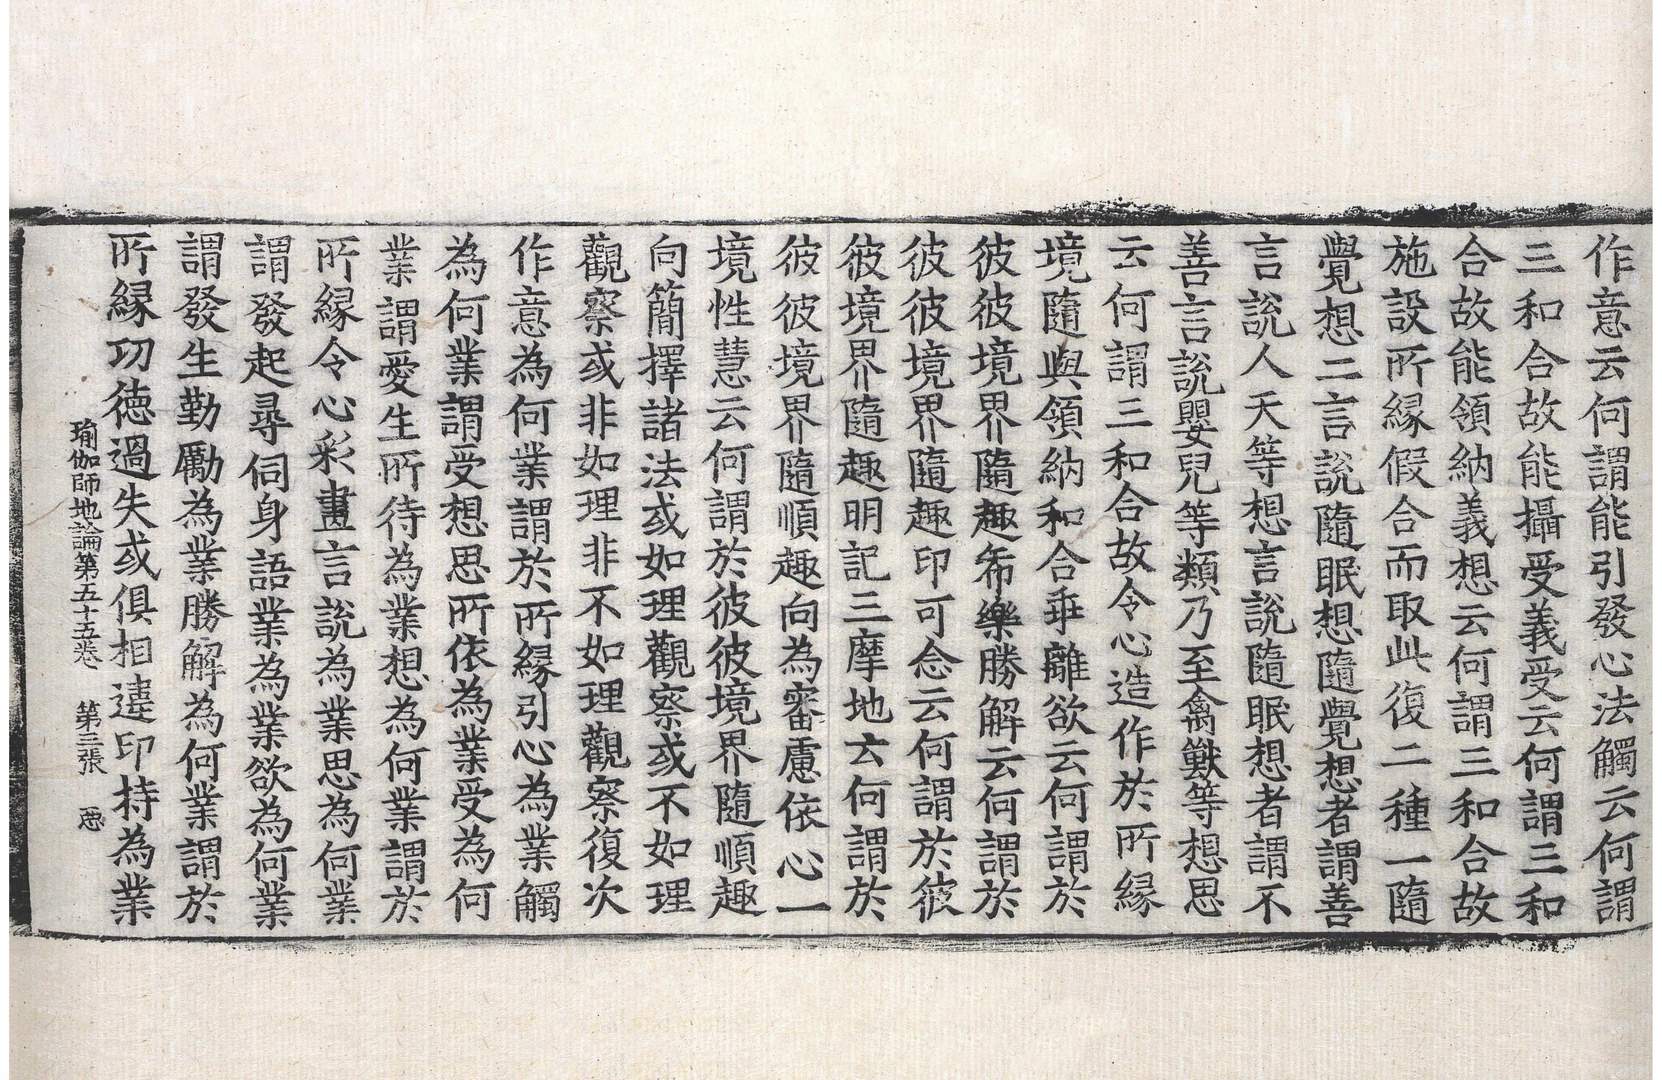 作意云何謂能引發心法觸云何謂
三和合故能攝受義受云何謂三和
合故能領納義想云何謂三和合故
施設所緣假合而取此復二種一隨
覺想二言說隨眠想隨覺想者謂善
言說人天等想言說隨眠想者謂不
善言說嬰兒等類乃至禽獸等想思
云何謂三和合故令心造作於所緣
境隨與領納和合乖離欲云何謂於
彼彼境界隨趣希樂勝解云何謂於
彼彼境界隨趣印可念云何謂於彼
彼境界隨趣明記三摩地云何謂於
彼彼境界隨順趣向為審慮依心一
境性慧云何謂於彼彼境界隨順趣
向簡擇諸法或如理觀察或不如理
觀察或非如理非不如理觀察復次
作意為何業謂於所緣引心為業觸
為何業謂受想思所依為業受為何
業謂愛生所待為業想為何業謂於
所緣令心彩畫言說為業思為何業
謂發起尋伺身語業為業欲為何業
謂發生勤勵為業勝解為何業謂於
所緣功德過失或俱相違印持為業
瑜伽師地論第五十五卷 第三張